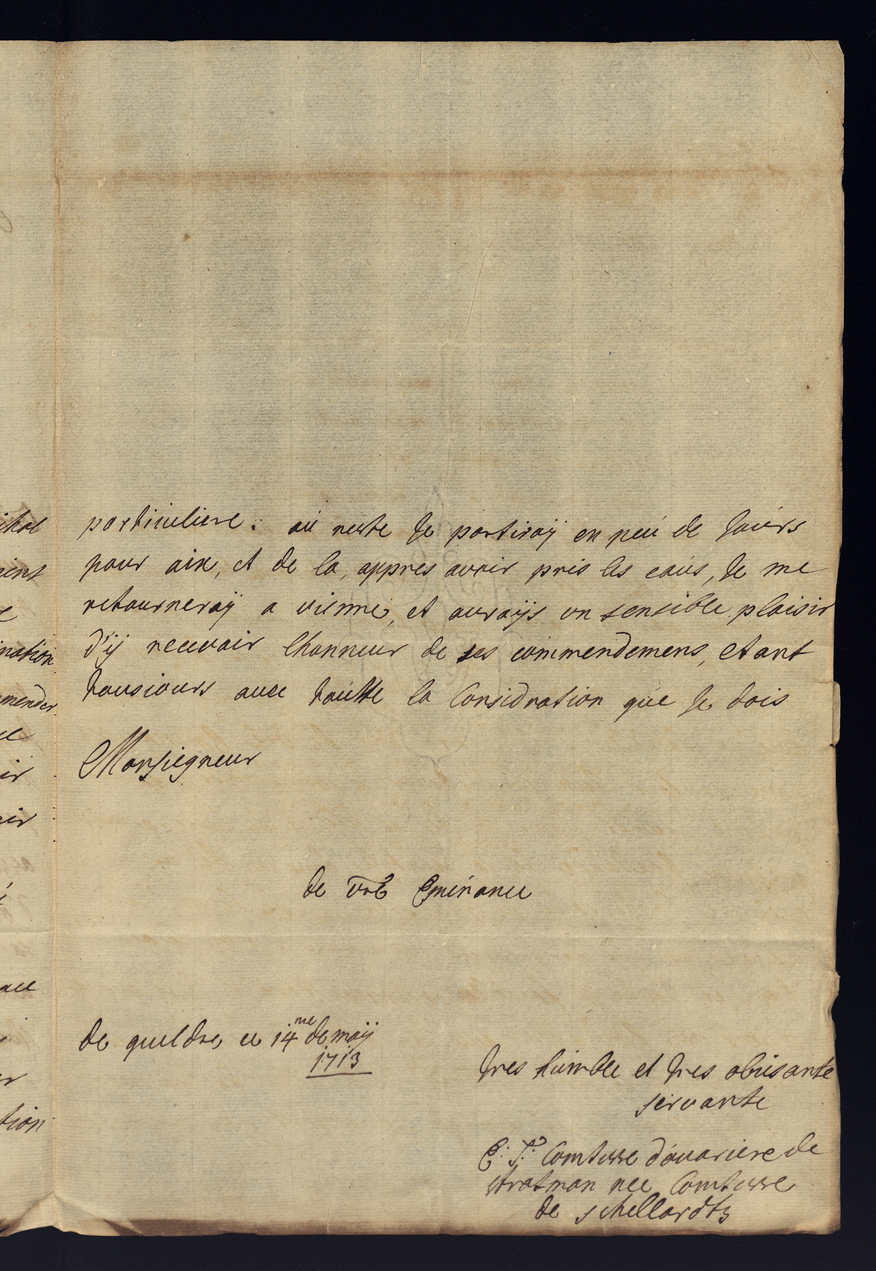 particuliere. aú reste Je partiraÿ en peú de Joúrs
pour aix, et de la, appres avoir pris les eaús, Je me
retourneraÿ a vienne, et auraÿs un sensible plaisir
d'ÿ recevoir lhonneúr de ses commendemens, etant
tousiours avec toútte la Considration qúe Je dois
Monseigneur
de vrê Eminance
de gueldre ce 14me de maÿ
1713
tres húmble et tres obeisante
servante
Comtesse doúariere de
stratman nee Comtesse
de schellardts
nation
mender
tion